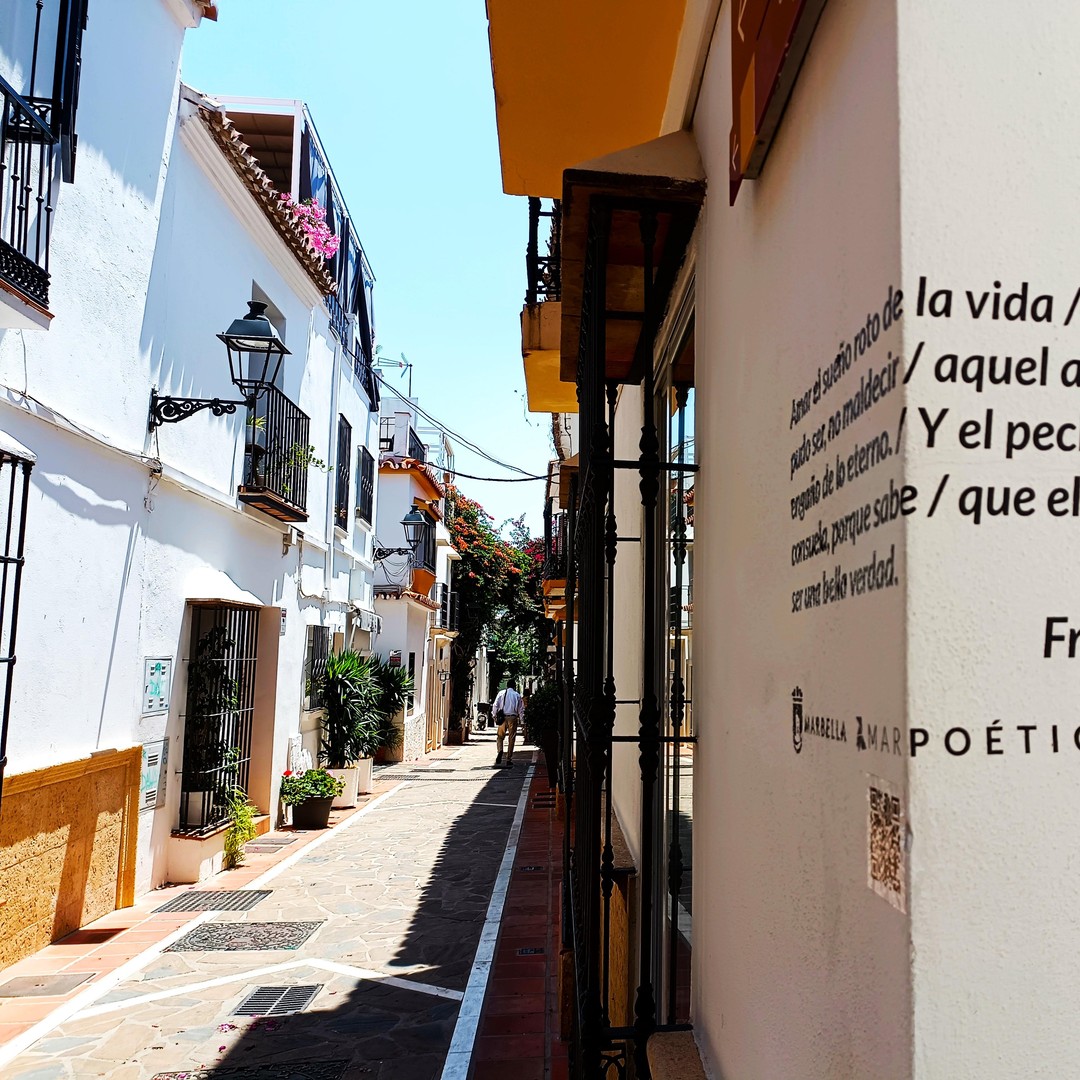 Amar el sueño roto de la vida /
pudo ser, no maldecir / aquel a
engaño de lo eterno. / Y el pec
consuela, porque sabe / que el
ser una bella verdad.
Fr
MARBELLA AMAR POÉTIC